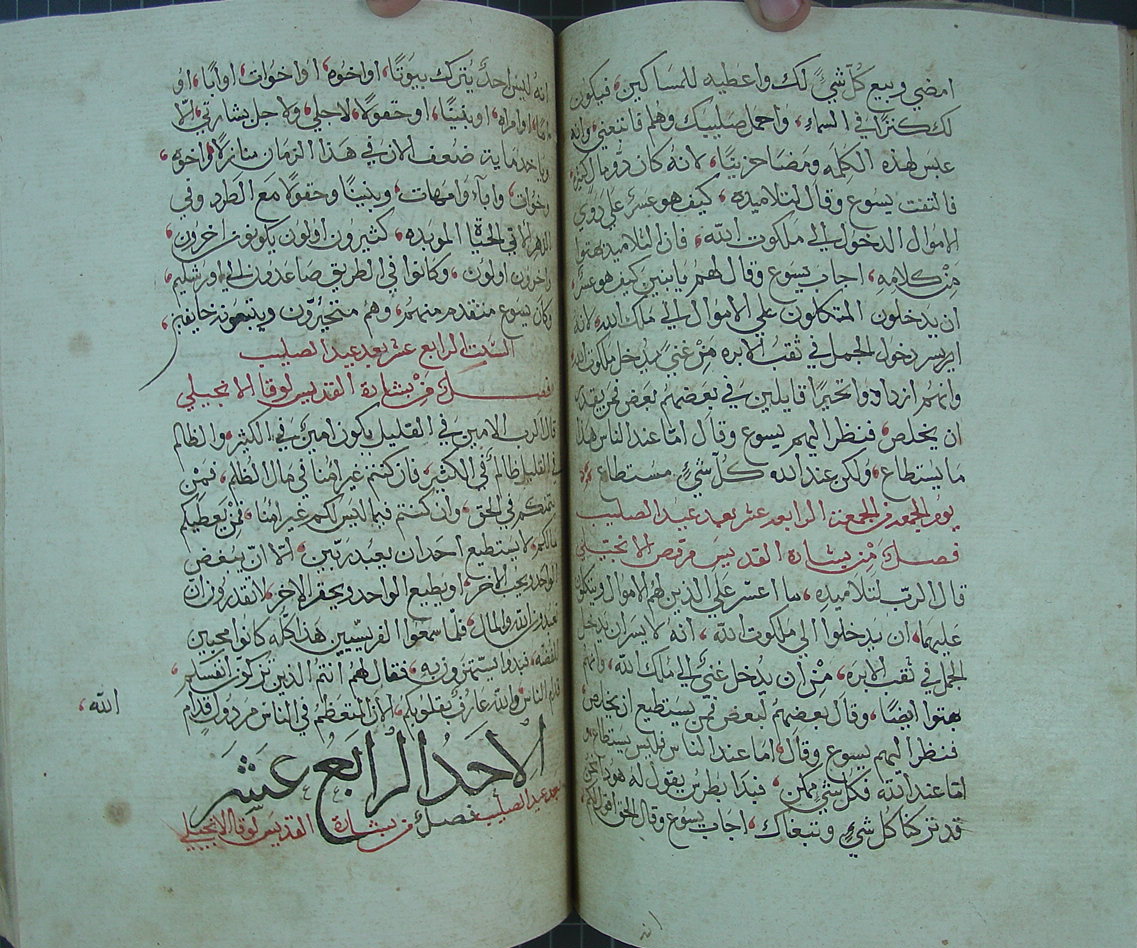 امضي وبيع كل شيً لك واعطيه للمساكين، فيكون
لك كنزًا في السماء، واحمل صليبك وهلم فاتبعني، وانه
عبس لهذه الكلمه ومضا حزينًا، لانه كان ذو مال كثيره
فالتفت يسوع وقال لتلاميذه، كيف هو عسرٌ علي ذوي
الاموال الدخول الي ملكوت الله، فان التلاميذ بهتوا
من كلامه، اجاب يسوع وقال لهم يا بنين كيف هو عسرٌ
ان يدخلون المتكلون علي الاموال الي ملك الله، لانه
ايسر دخول الجمل في ثقب الابره من غني يدخل ملكوت الله
وانهم ازدادوا تحيرًا قايلين في بعضهم لبعض فمن يقدر
ان يخلص، فنظر اليهم يسوع وقال اما عند الناس هذا
ما يستطاع، ولكن عند الله كل شيً مستطاع
يوم الجمعه من الجمعة الرابعه عشر بعد عيد الصليب
فصل من بشارة القديس مرقص الانجيلي
قال الرب لتلاميذه، ما اعسر علي الذين لهم الاموال ويتكلو
عليها، ان يدخلوا الي ملكوت الله، انه لايسر ان يدخل
الجمل في ثقب الابره، من ان يدخل غني الي ملك الله، وانهم
بهتوا ايضًا، وقال بعضهم لبعض فمن يستطيع ان يخلص،
فنظر اليهم يسوع وقال، اما عند الناس فليس يستطاع، و
اما عند الله فكل شي ممكن، فبدا بطرس يقول له هوذا نحن
قد تركنا كل شيً وتبعناك، اجاب يسوع وقال الحق اقول لكم،
انه ليس احدٌ يترك بيوتًا، او اخوه، او اخوات، او ابًا، او
امًا، او امراه، او بنينًا، او حقولًا، لاجلي، ولاجل بشارتي، الا
وياخد ماية ضعف الان في هذا الزمان منازلًا، واخوه،
واخوات، وابآء، وامهات، وبنينًا وحقولًا مع الطرد، وفي
الدهر الاتي الحياة الموبده، كثيرون اولون يكونون اخرون،
واخرون اولون، وكانوا في الطريق صاعدون الي اورشليم،
وكان يسوع متقدم منهم، وهم متحيرون ويتبعونه خايفين،
السبت الرابع عشر بعد عيد الصليب
فصل من بشارة القديس لوقا الانجيلي
قال الرب الامين في القليل يكون امينٌ في الكثير، والظالم
في القليل ظالمٌ في الكثير، فان كنتم غير امنا في مال الظلم، فمن
ياتمنكم في الحق، وان كنتم فيما ليس لكم غير امنا، فمن يعطيكم
مالكم، لا يستطيع احد ان يعبد ربين، الا ان يبغض
الواحد ويحب الاخر، او يطيع الواحد ويحقر الاخر، لا تقدرون ان
تعبدون الله والمال، فلما سمعوا الفريسيين هذا كله كانوا محبين
الفضه، فبدوا يستهزون به، فقال لهم انتم الذين تزكون انفسكم
قدام الناس، والله عارف بقلوبكم، لان المتعظم في الناس مردول قدام
الله،
الاحد الرابع عشر
بعد عيد الصليب فصل من بشارة القديس لوقا الانجيلي